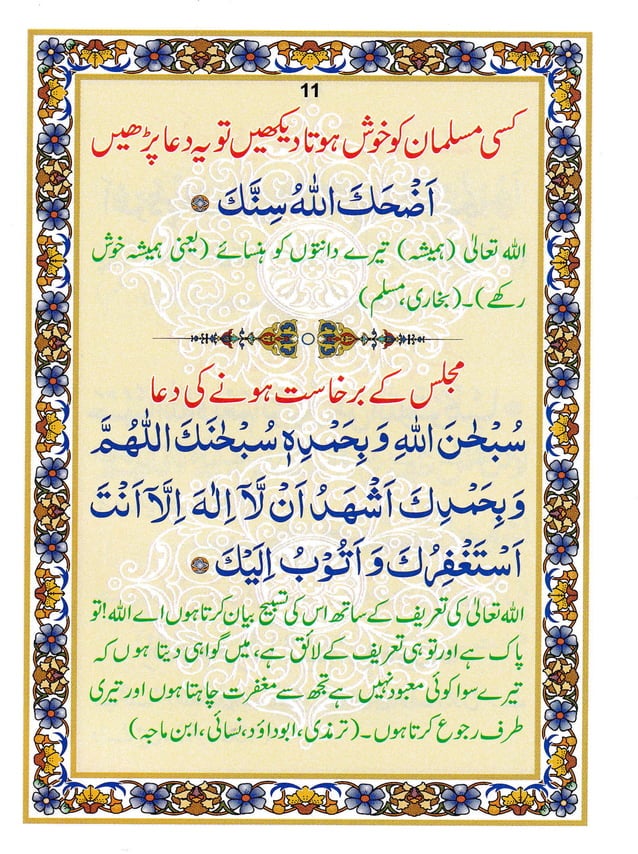 11
کسی مسلمان کو خوش ہوتا دیکھیں تو یہ دعا پڑھیں
اَضْحَكَ اللّٰهُ سِنَّكَ
اللہ تعالیٰ (ہمیشہ) تیرے دانتوں کو ہنسائے (یعنی ہمیشہ خوش
رکھے)۔(بخاری، مسلم)
مجلس کے برخاست ہونے کی دعا
سُبْحٰنَ اللّٰهِ وَبِحَمْدِهٖ سُبْحٰنَكَ اللّٰهُمَّ
وَبِحَمْدِكَ اَشْهَدُ اَنْ لَّآ اِلٰهَ اِلَّآ اَنْتَ
اَسْتَغْفِرُكَ وَاَتُوْبُ اِلَيْكَ
اللہ تعالیٰ کی تعریف کے ساتھ اس کی تسبیح بیان کرتا ہوں اے اللہ! تو
پاک ہے اور تو ہی تعریف کے لائق ہے، میں گواہی دیتا ہوں کہ
تیرے سوا کوئی معبود نہیں ہے تجھ سے مغفرت چاہتا ہوں اور تیری
طرف رجوع کرتا ہوں۔(ترمذی، ابوداؤد، نسائی، ابن ماجہ)